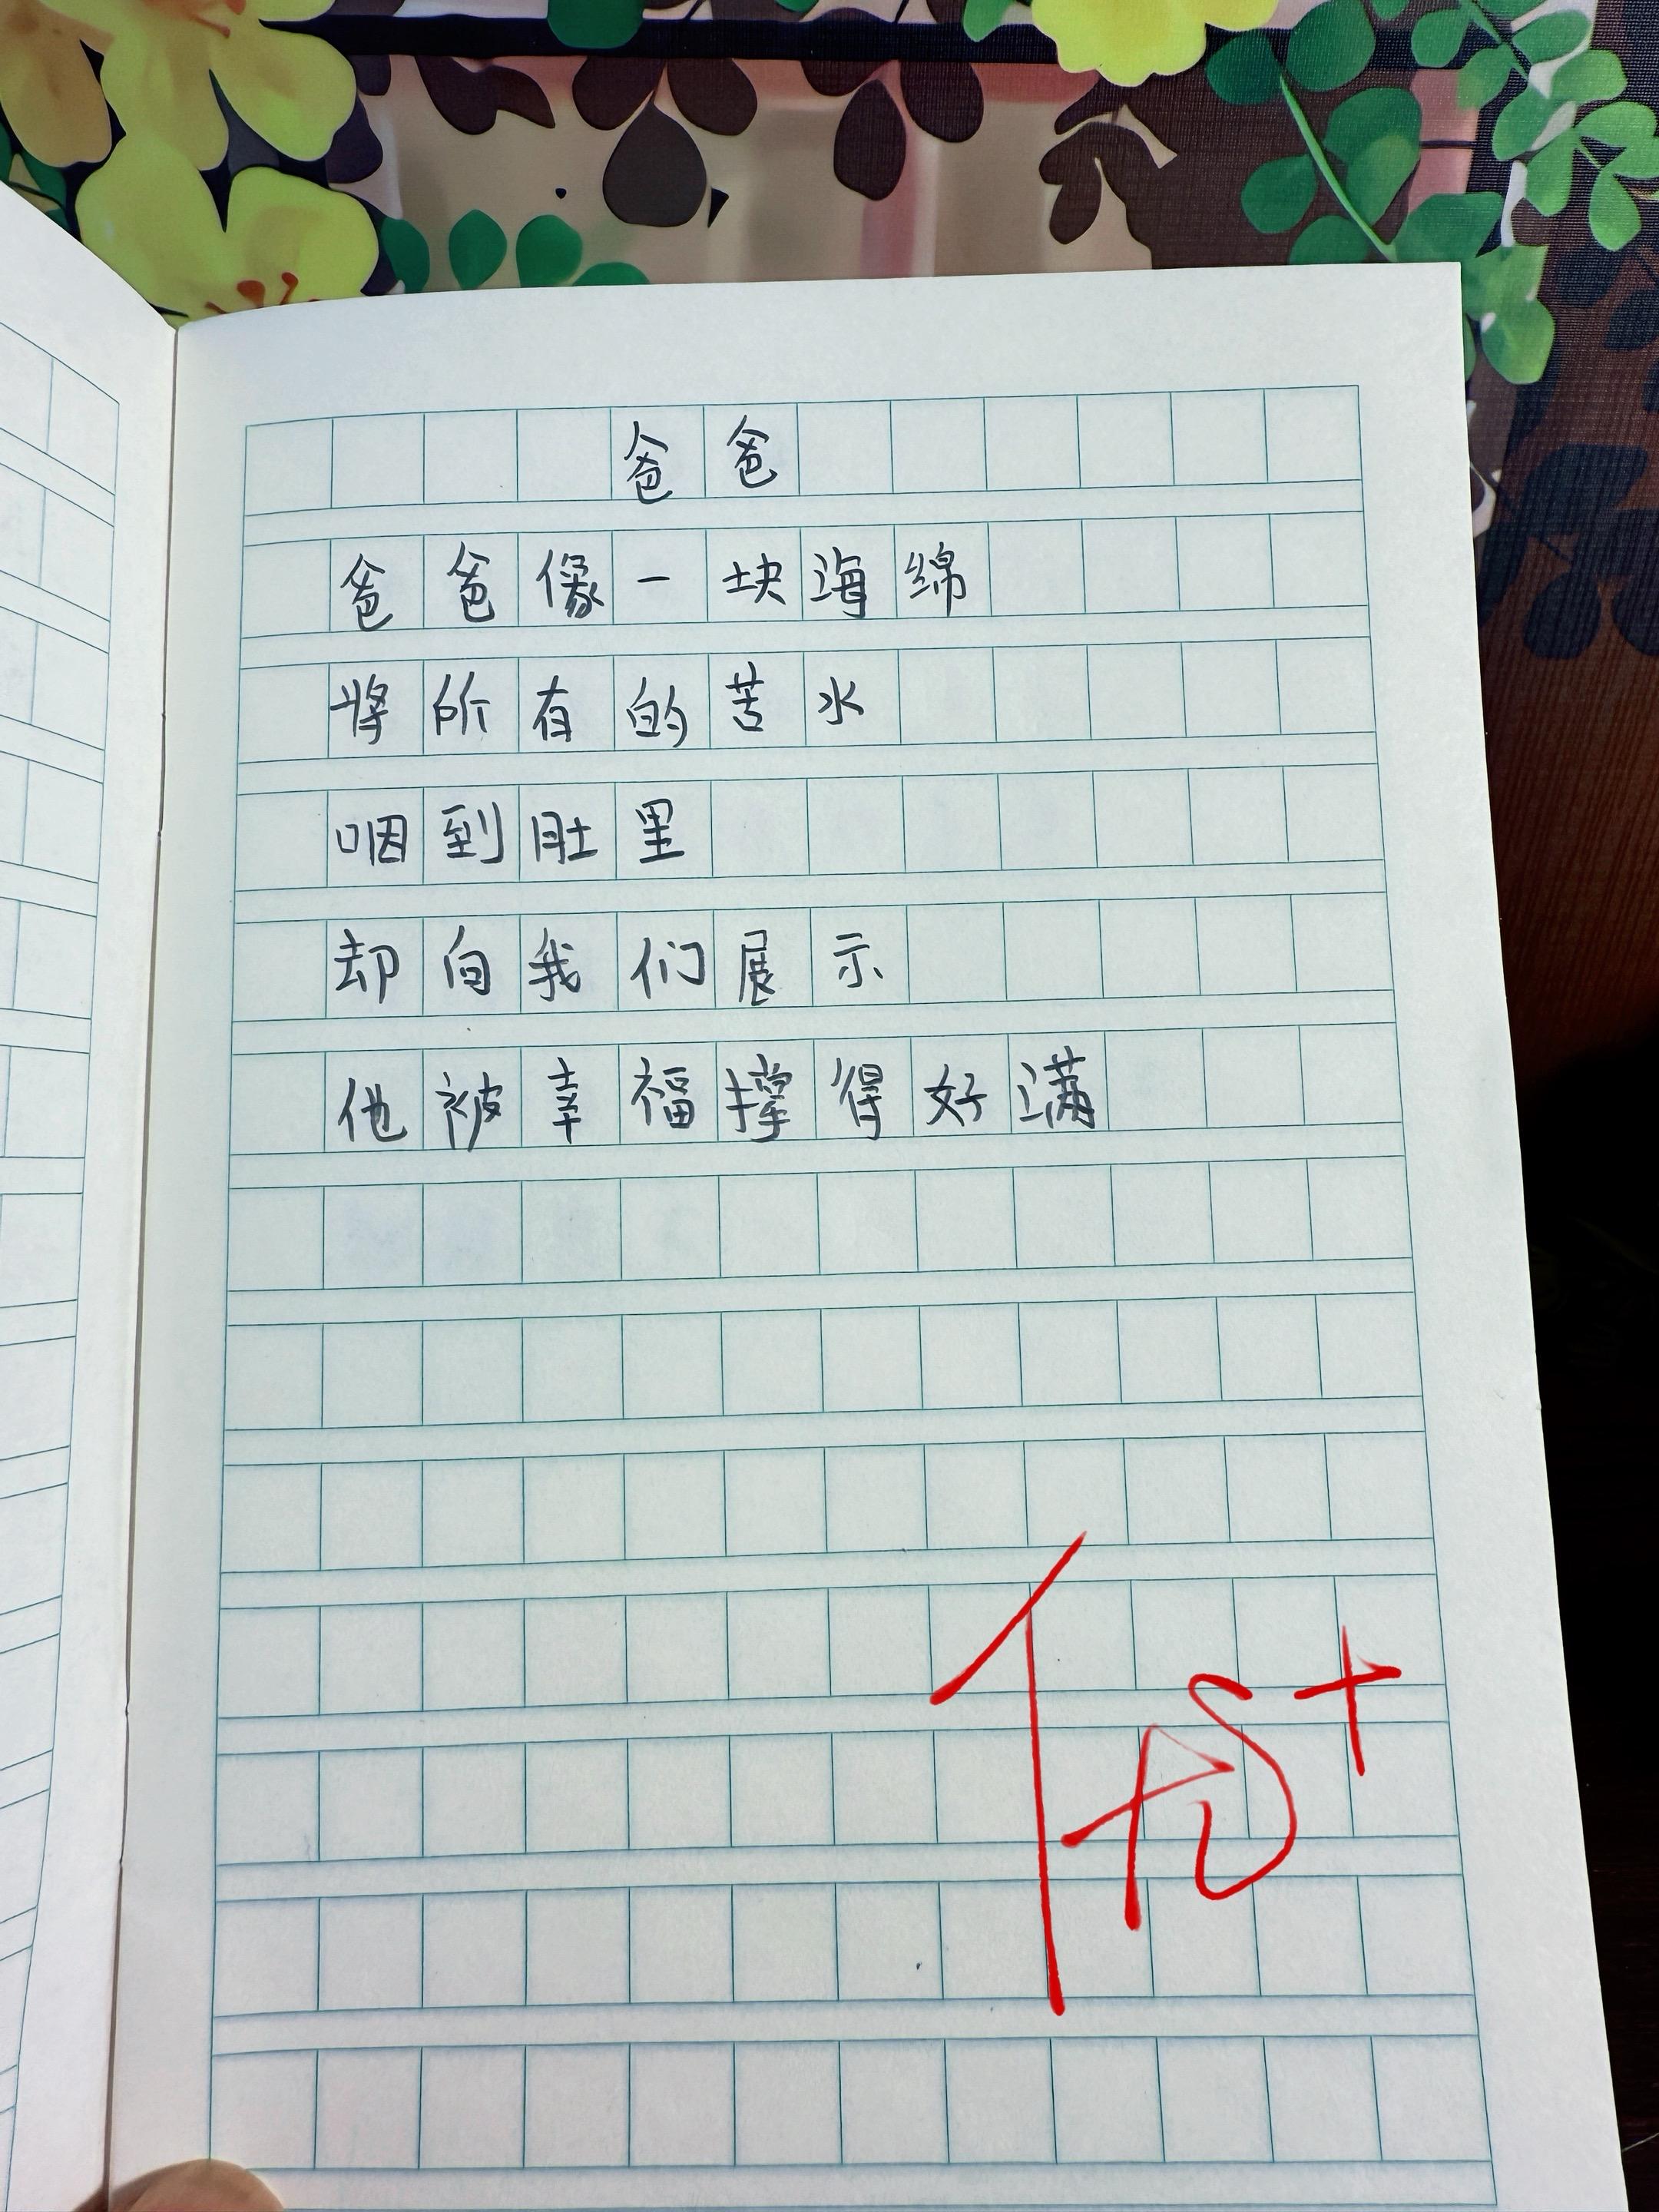 爸爸
爸爸像一块海绵
将所有的苦水
咽到肚里
却向我们展示
他被幸福撑得好满
优+